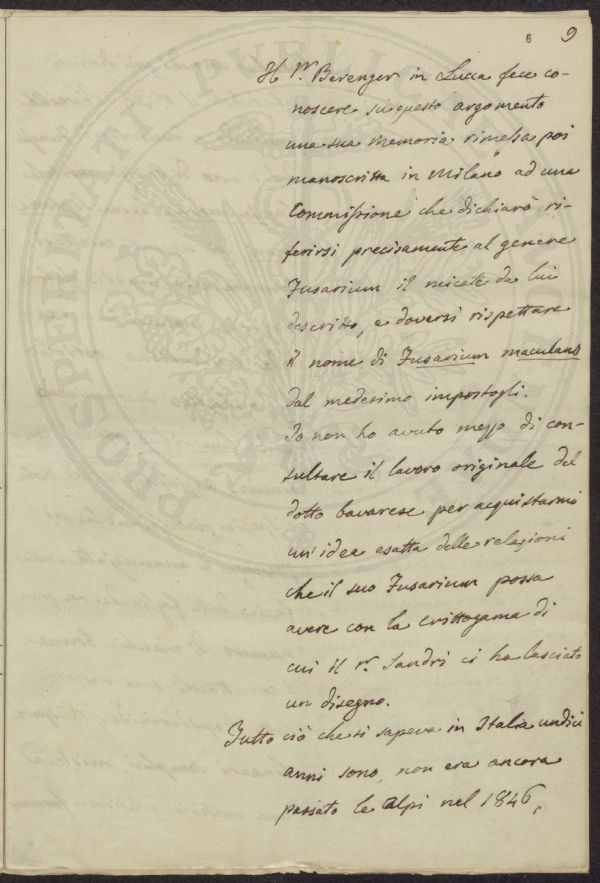 6 9
Il Sr. Berenger in Lucca fece co-
noscere su questo argomento
una sua Memoria rimessa poi
manoscritta in Milano ad una
Commissione che dichiarò ri-
ferirsi precisamente al genere
Fusarium il micete da lui
descritto, e doversi rispettare
il nome di Fusarium maculans
dal medesimo impostogli.
Io non ho avuto mezzo di con-
sultare il lavoro originale del
dotto bavarese per acquistarmi
un'idea esatta delle relazioni
che il suo Fusarium possa
avere con la crittogama di
cui il Sr. Sandri ci ha lasciato
un disegno.
Tutto ciò che si sapeva in Italia undici
anni sono, non era ancora
passato le Alpi nel 1846,
PROSPERITATI PUBLICAE